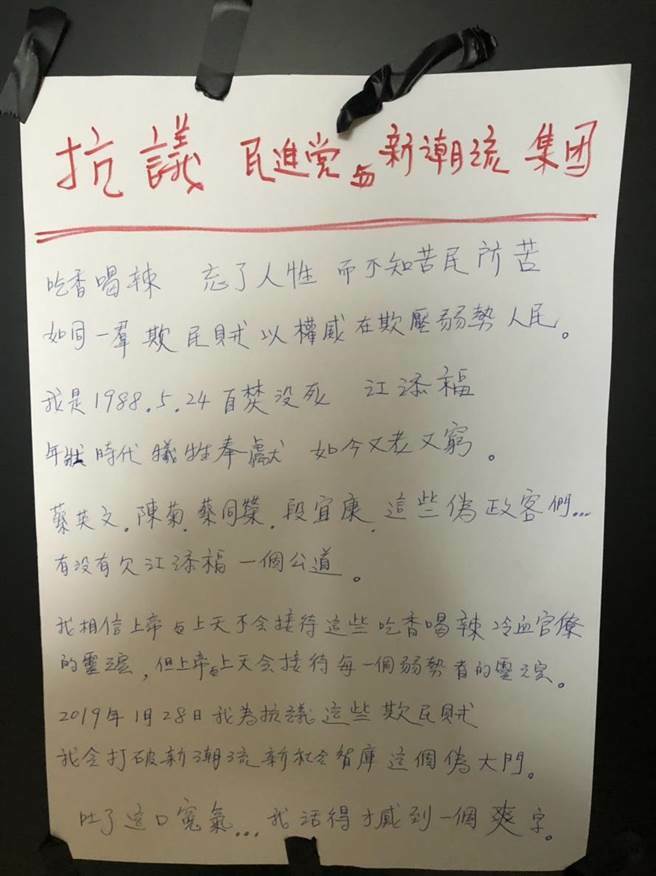 抗議 民進党与新潮流集团
吃香喝辣 忘了人性 而不知苦民所苦
如同一羣欺民賊以權威在欺壓弱勢人民。
我是1988.5.24自焚没死 江添福
年壯時代犠牲奉獻 如今又老又窮。
蔡英文.陳菊.蔡同榮.段宜康.這些偽政客們...
有没有欠江添福一個公道。
我相信上帝与上天不会接待這些吃香喝辣冷血官僚
的靈魂,但上帝与上天会接待每一個弱勢者的靈魂。
2019年1月28日我為抗議這些欺民賊
我会打破新潮流新社会智庫這個偽大門。
吐了這口寃氣...我活得才感到一個爽字。